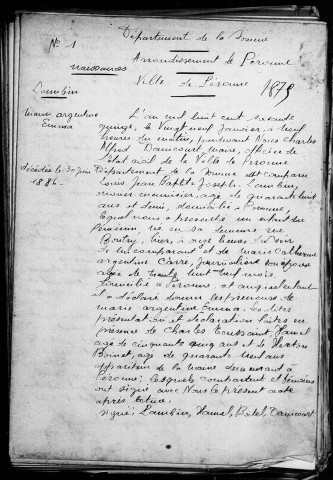 Département de la Somme
N° 1
Naissances
Arrondissement de Péronne
Ville de Péronne
1875
Lambin
Marie argentine
Emma
L'an mil huit cent soixante
quinze, le vingt neuf Janvier, à neuf
heures du matin, pardevant Nous Charles
Alfred Daucourt Maire, officier de
l'état civil de la Ville de Péronne
décédée le 30 juin
1886.
Département de la Somme est comparu
Louis Jean Baptiste Joseph Lambin,
ouvrier menuisier agé de quarante huit
ans et demi, domicilié à Péronne,
lequel nous a présenté un enfant du
féminin né en sa demeure rue
hier, à onze heures du soir
de lui comparant et de Marie Catherine
argentine Carre, journalière son épouse
agée de trente huit ans neuf mois,
domiciliée à Péronne, et auquel enfant
il a déclaré donner les prénoms de
marie argentine Emma. Les dites
présentation et déclaration faites en
présence de Charles Toussaint Hamel
age de cinquante cinq ans et de
age de quarante ans
appariteur de la Mairie demeurant à
Péronne; lesquels comparant et témoins
ont signé avec Nous le présent acte
après lecture.
signé: Lambin, Hamel, Daucourt